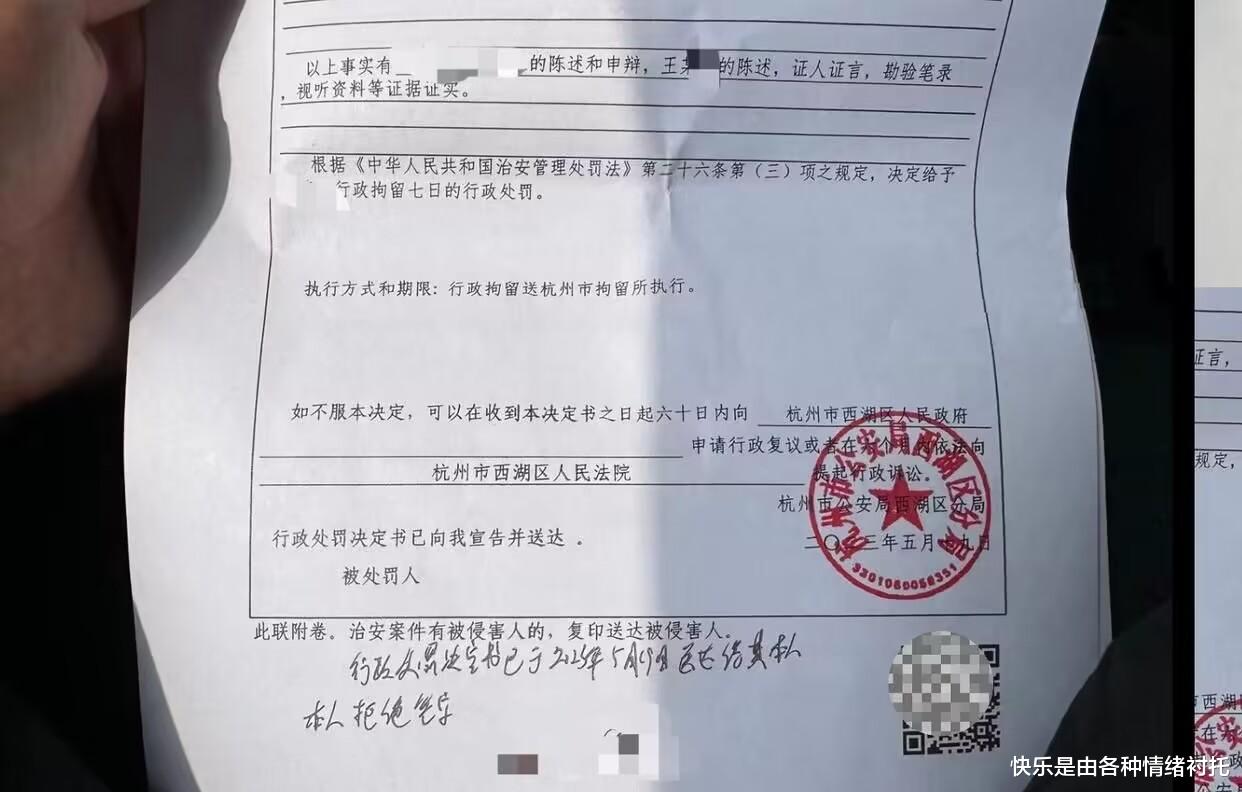 以上事实有 的陈述和申辩，王某 的陈述，证人证言，勘验笔录
，视听资料等证据证实。
根据《中华人民共和国治安管理处罚法》第二十六条第（三）项之规定，决定给予
行政拘留七日的行政处罚。
执行方式和期限：行政拘留送杭州市拘留所执行。
如不服本决定，可以在收到本决定书之日起六十日内向 杭州市西湖区人民政府
申请行政复议或者在六个月内依法向
杭州市西湖区人民法院 提起行政诉讼。
杭州市公安局西湖区分局
杭州市公安局西湖区分局
3301060058351
行政处罚决定书已向我宣告并送达 。
被处罚人
此联附卷。治安案件有被侵害人的，复印送达被侵害人。
行政处罚决定书已于 年5月19日 其本人
本人拒绝签字
证言，
规定，
快乐是由各种情绪衬托